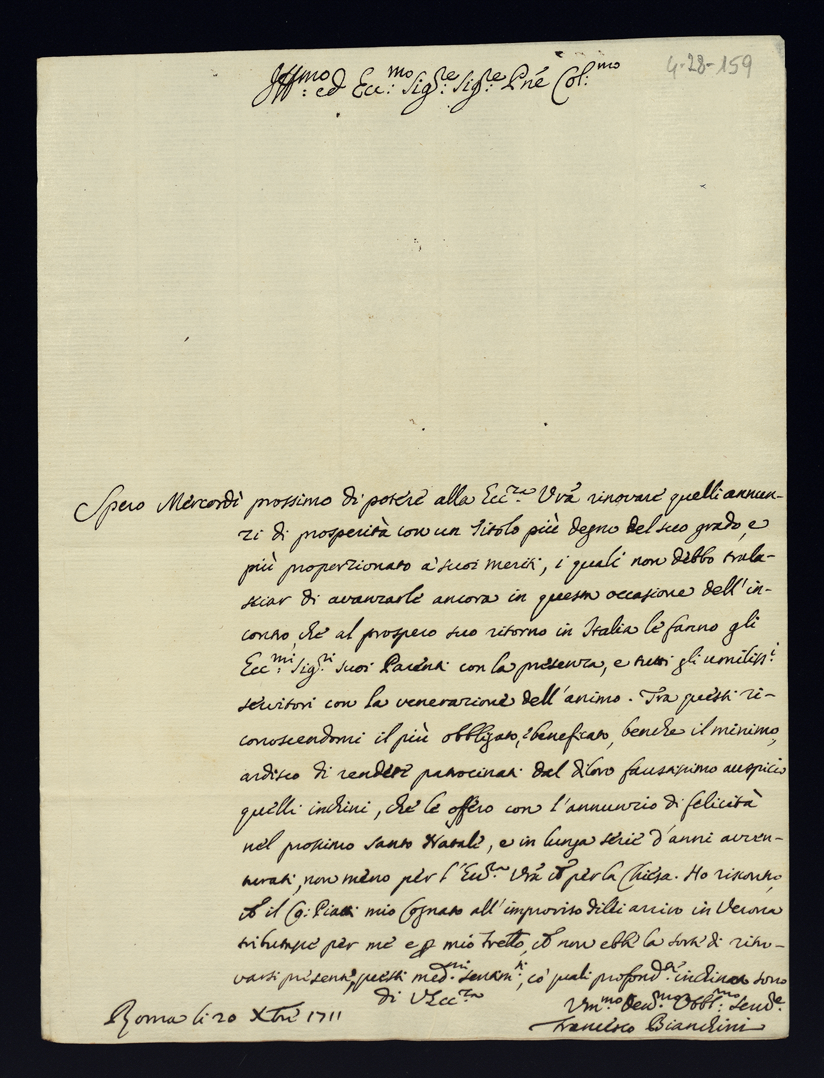 4-28-159
Illmo: ed Ecc:mo Sig:re Sig:re Pne Col:mo
Spero Mercordì prossimo di potere alla Ecc:za Vrã rinovare quelli annun-
zi di prosperità con un Titolo più degno del suo grado, e
più proporzionato a' suoi meriti, i quali non debbo trala-
sciar di avanzarle ancora in questa occasione dell'in-
contro, che al prospero suo ritorno in Italia le fanno gli
Ecc:mi Sig:ri suoi Parenti con la presenza, e tutti gli umiliss:i
servitori con la venerazione dell'animo. Tra questi ri-
conoscendomi il più obbligato, e beneficato, benche il minimo,
ardisco di rendere patrocinati dal di loro faustissimo auspicio
quelli inchini, che le offero con l'annunzio di felicità
nel prossimo Santo Natale, e in lunga serie d'anni avven-
turati, non meno per l'Ecc:za Vrã che per la Chiesa. Ho riscontro,
che il Co: Piatti mio Cognato all'improviso di lei arrivo in Verona
per me e mio fratello, che non ebbe la sorte di ritro-
varsi presente, questi med:mi sentim:ti, co' quali profond:te inchinato sono
di V Ecc:za
Roma li 20 Xbre 1711
Um:mo Dev:mo Obbl:mo Serv:e
Francesco Bianchini